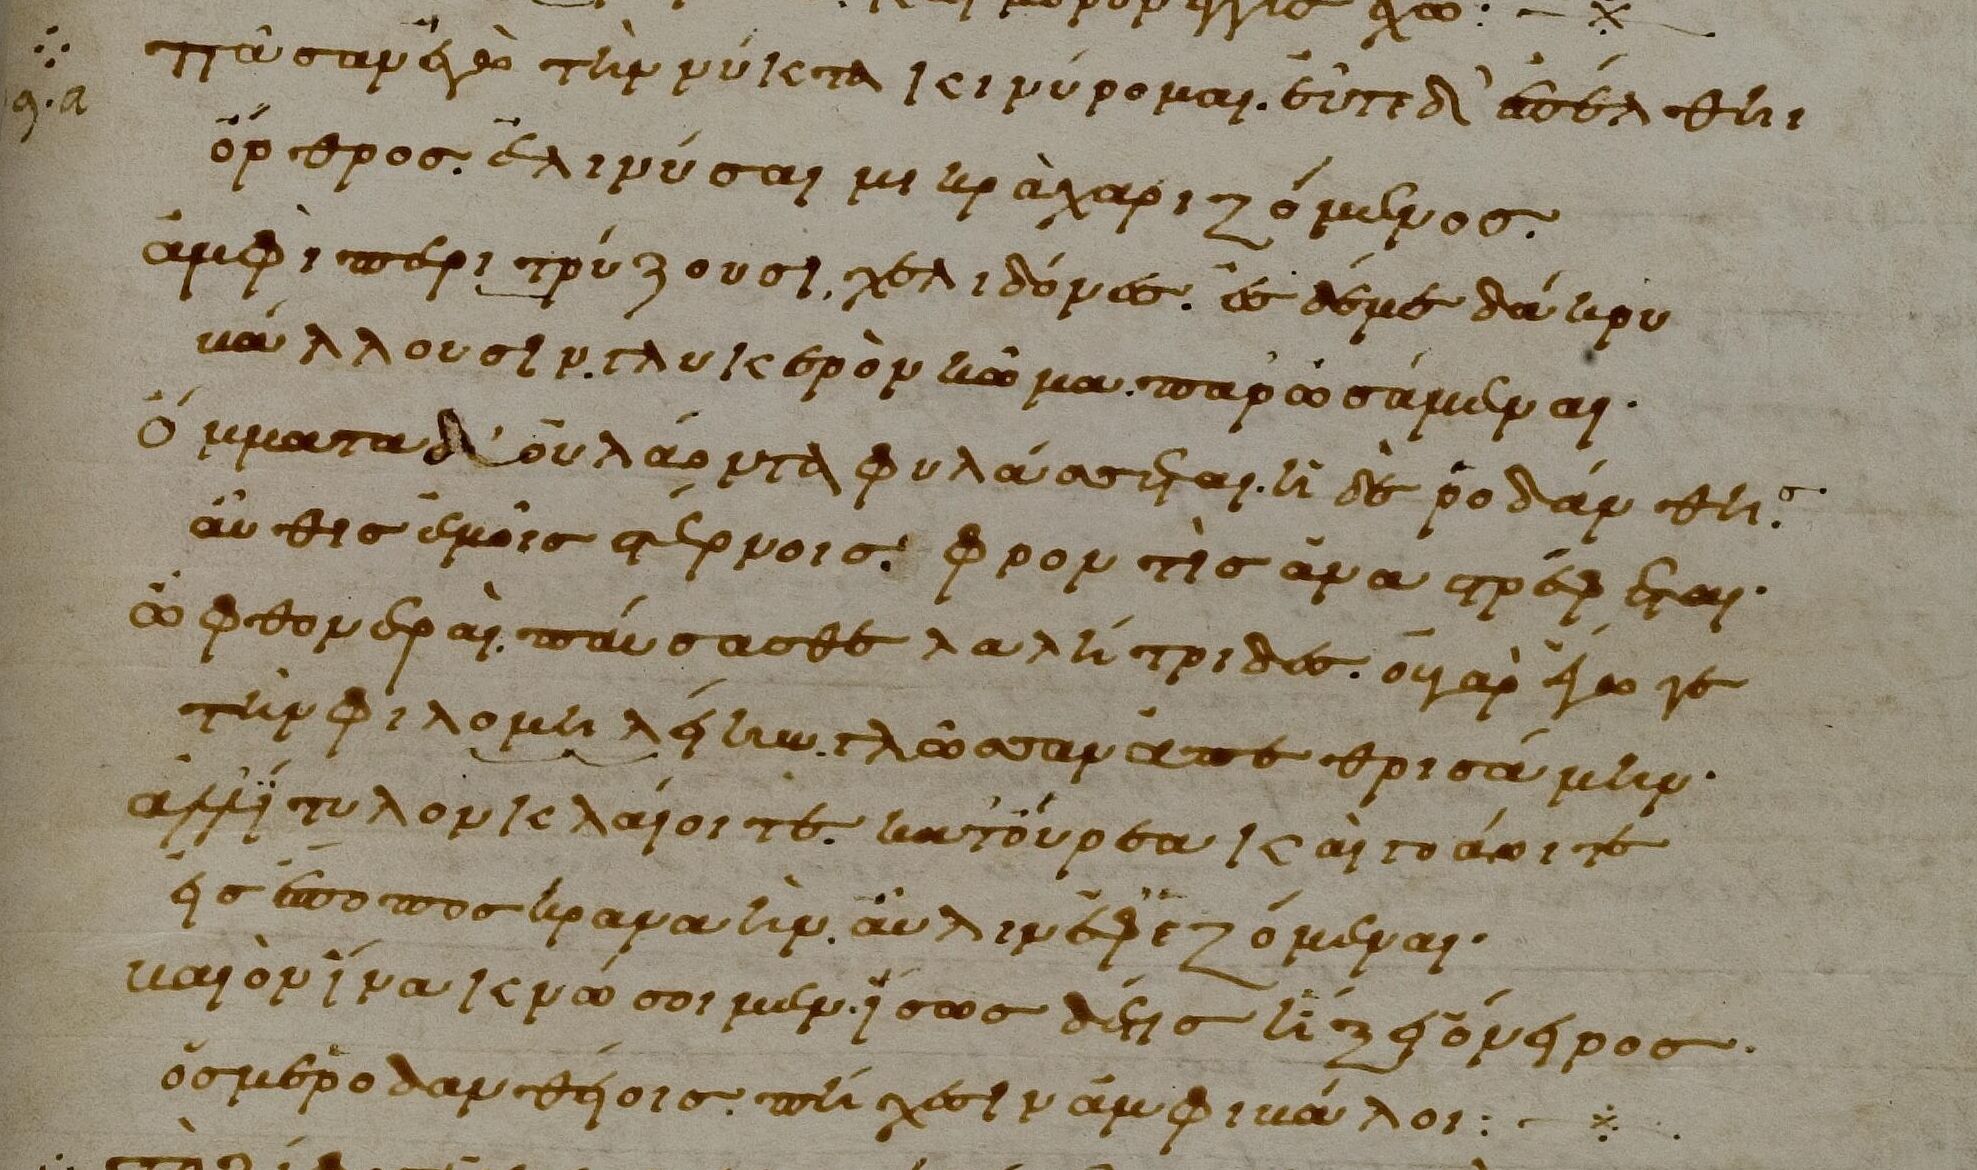 πᾶσαν ἐγὼ τὴν νύκτα κινύρομαι. εὖτε δ' ἐπέλθηι
ὄρθρος. ἐλινύσαι μικρὰ χαριζόμενος.
ἀμφιπεριτρύζουσι, χελιδόνες. ἐς δέ με δάκρυ
βάλλουσιν. γλυκερὸν κῶμα παρωσάμεναι.
ὄμματα δ' οὐ λάοντα φυλάσσεται. ἡ δὲ ῥοδάνθης
αὖθις ἐμοῖς στέρνοις. φροντὶς ἀναστρέφεται.
ὦ φθονεραὶ παύσασθε λαλήτριδες. οὐ γὰρ ἔγωγε
τὴν φιλομηλείην γλῶσσαν ἀπεθρισάμην.
ἀλλ' ἴτυλον κλαίοιτε. κατ' οὔρεα καὶ γοάοιτε
εἰς ἔποπος κραναὴν αὖλιν ἐφεζόμεναι.
βαιὸν ἵνα κνώσοιμεν. ἴσως δέ τις ἥξει ὄνειρος
ὅς με ῥοδανθείοις πήχεσιν ἀμφιβάλοι: